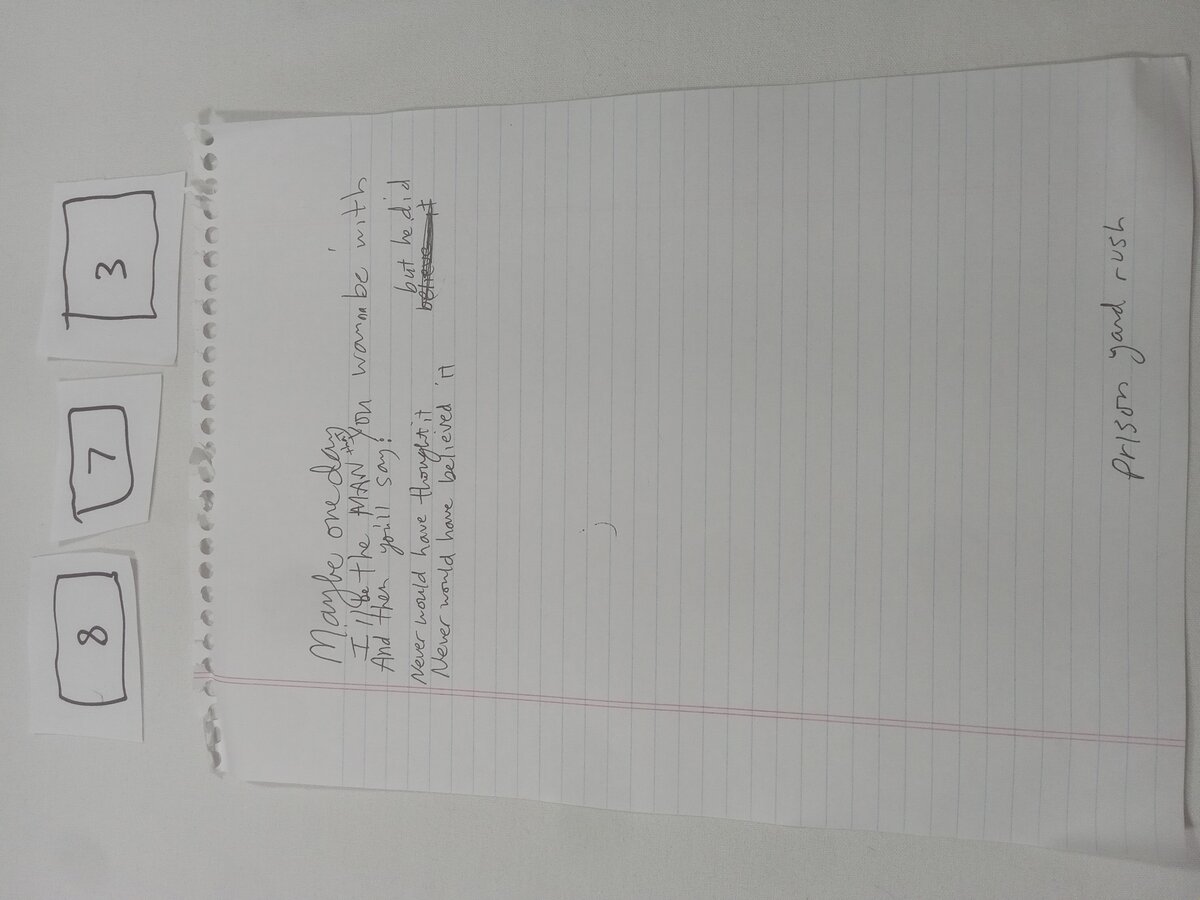 8 7 3
Maybe one day
I'll be the MAN that you wanna be with
And then you'll say:
Never would have thought it but he did
Never would have believed it believe it
Prison yard rush